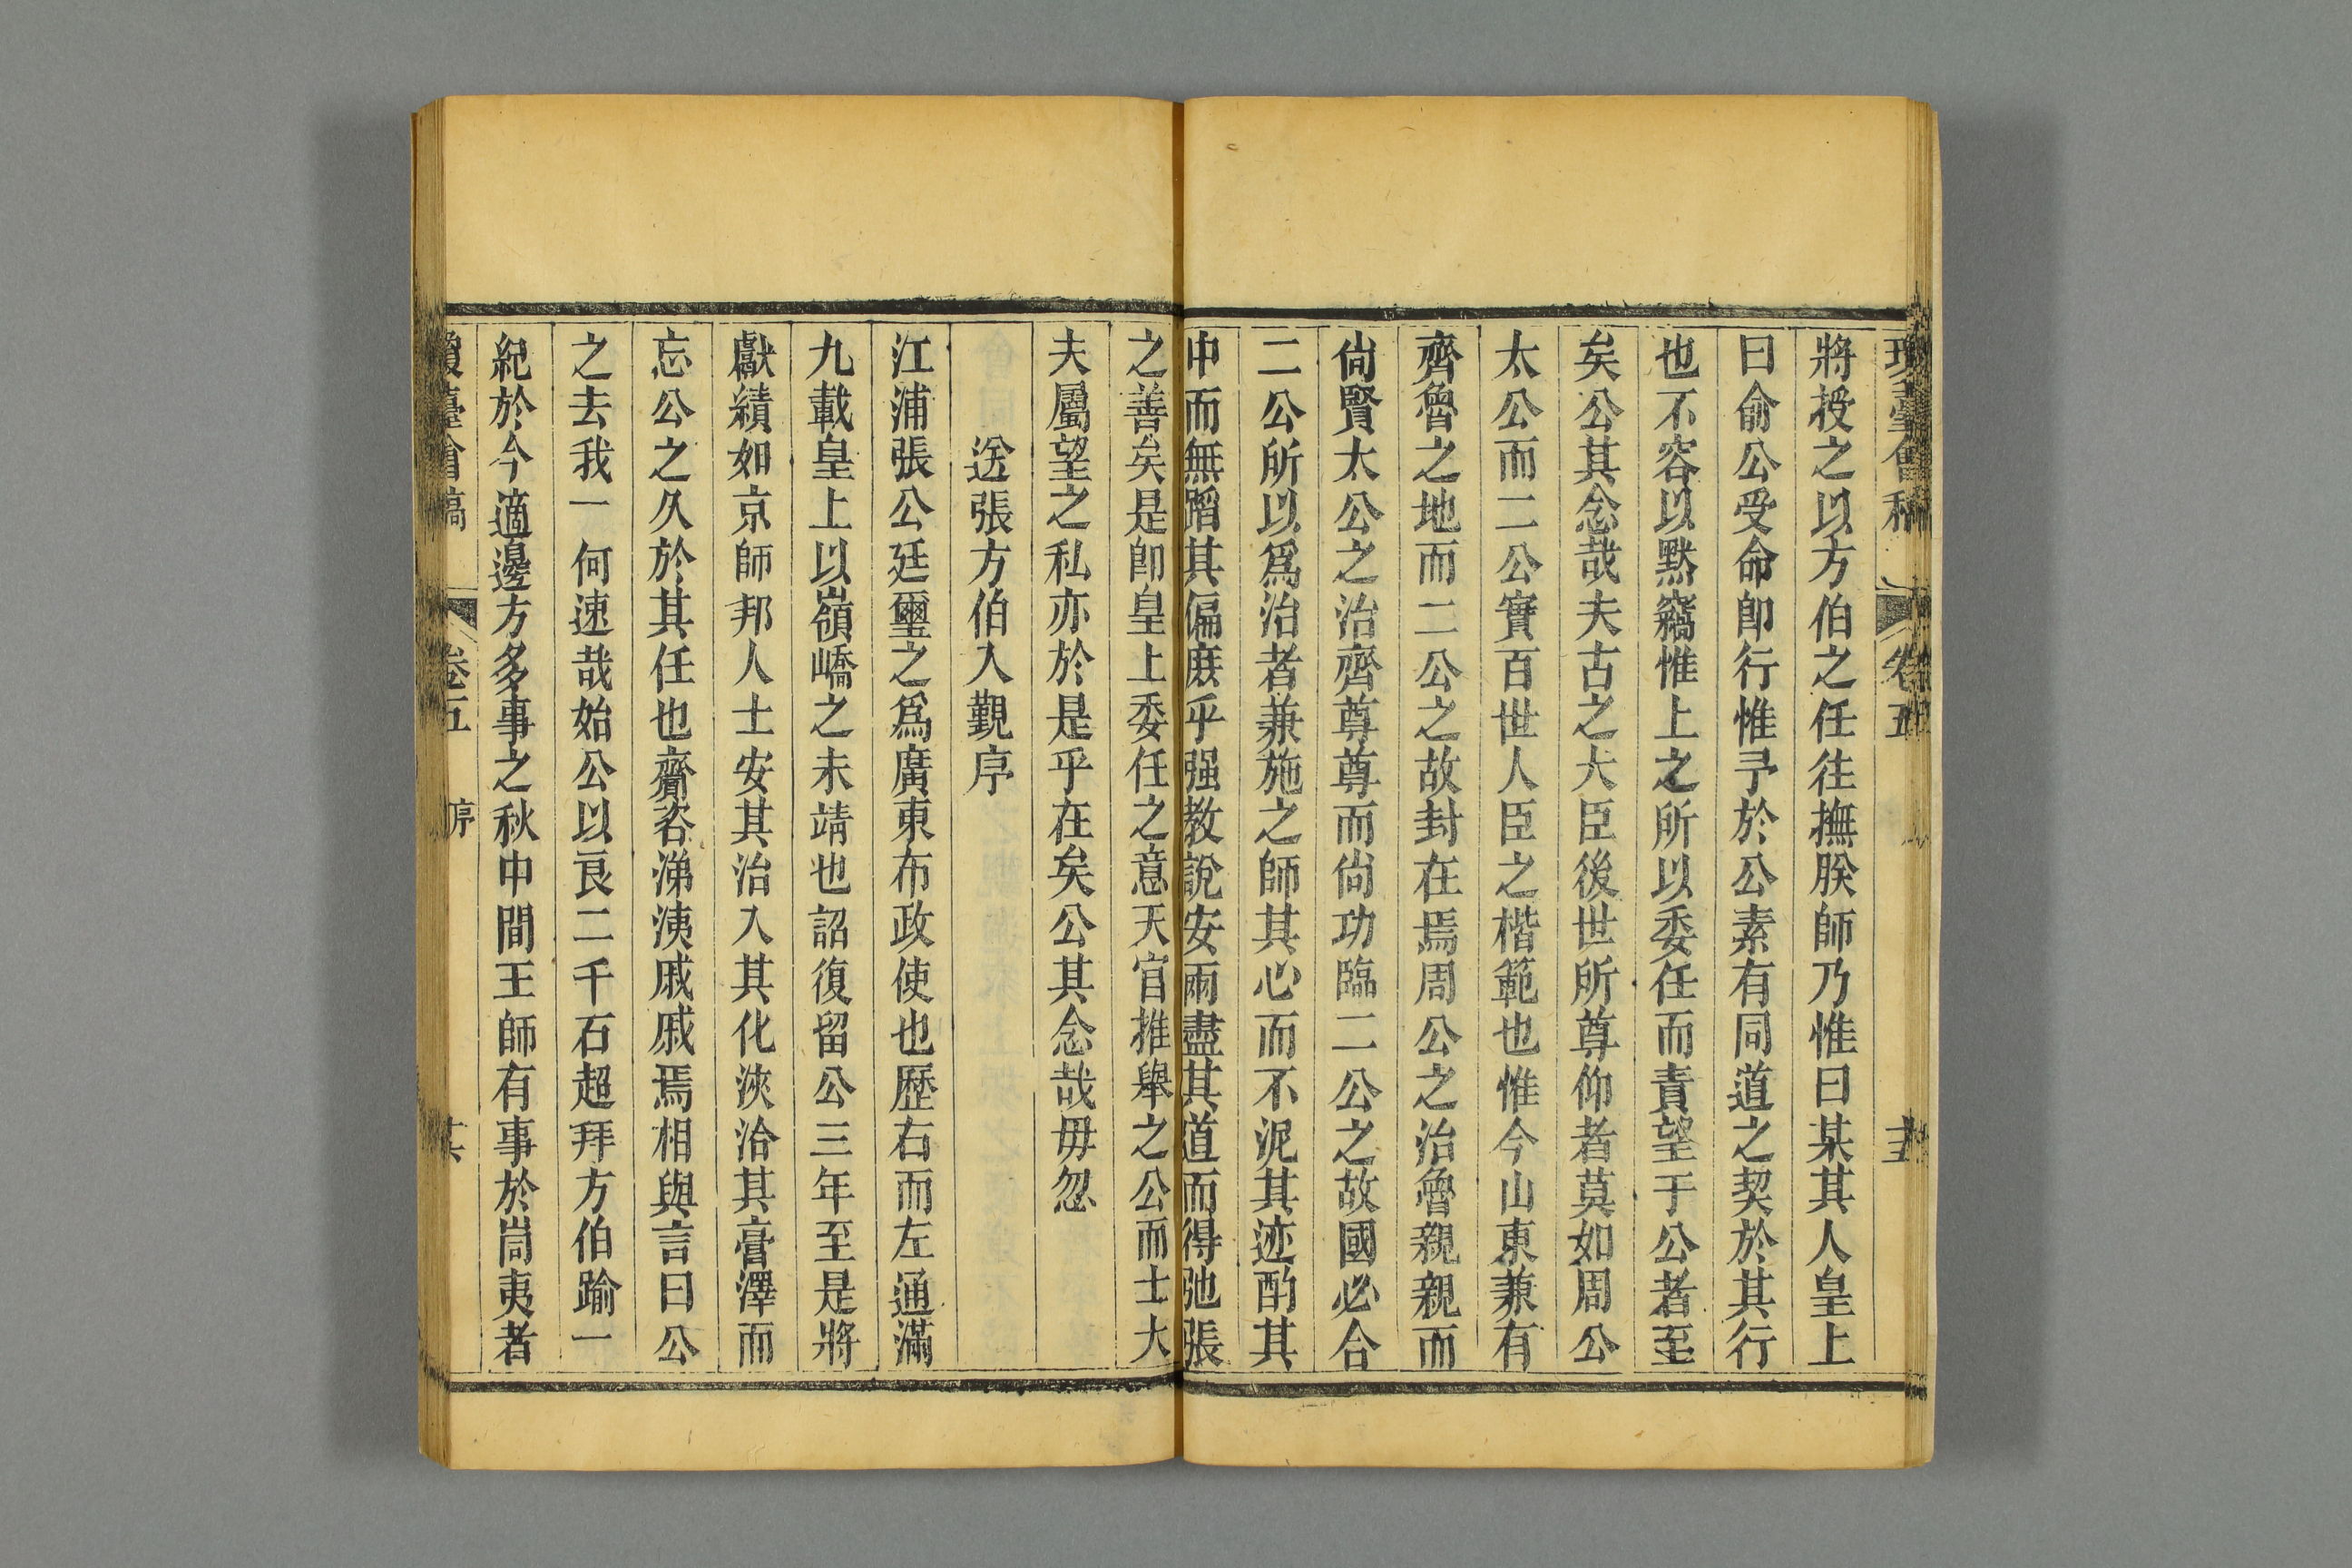 瓊臺會稿 卷五
將授之以方伯之任往撫朕師乃惟曰某其人皇上
曰俞公受命卽行惟予於公素有同道之契於其行
也不容以黙竊惟上之所以委任而責望于公者至
矣公其念哉夫古之大臣後世所尊仰者莫如周公
太公而二公實百世人臣之楷範也惟今山東兼有
齊魯之地而二公之故封在焉周公之治魯親親而
尙賢太公之治齊尊尊而尙功臨二公之故國必合
二公所以爲治者兼施之師其心而不泥其迹酌其
中而無蹈其偏庶乎强教說安兩盡其道而得弛張
之善矣是卽皇上委任之意天官推舉之公而士大
夫屬望之私亦於是乎在矣公其念哉毋忽
送張方伯入覲序
江浦張公廷璽之爲廣東布政使也歷右而左通滿
九載皇上以嶺嶠之未靖也詔復留公三年至是將
獻績如京師邦人士安其治入其化浹洽其膏澤而
忘公之久於其任也齎咨涕洟戚戚焉相與言曰公
之去我一何速哉始公以良二千石超拜方伯踰一
紀於今適邊方多事之秋中間王師有事於峝夷者
瓊臺會稿 卷五 序